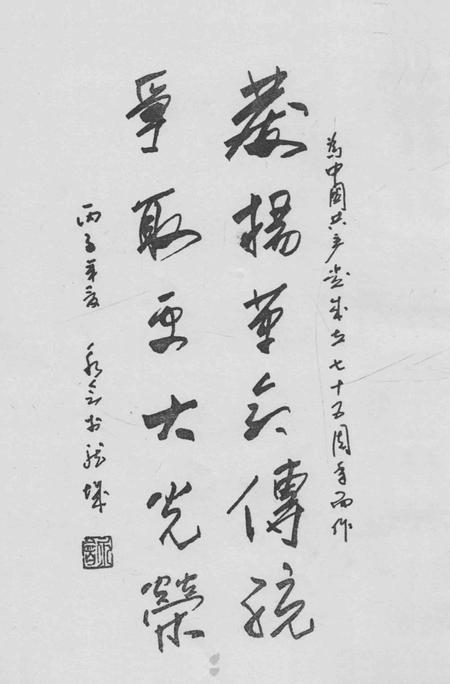 為中國共产党成立七十五周年而作
發揚革命傳統
爭取更大光榮
丙子年夏 永言书於城